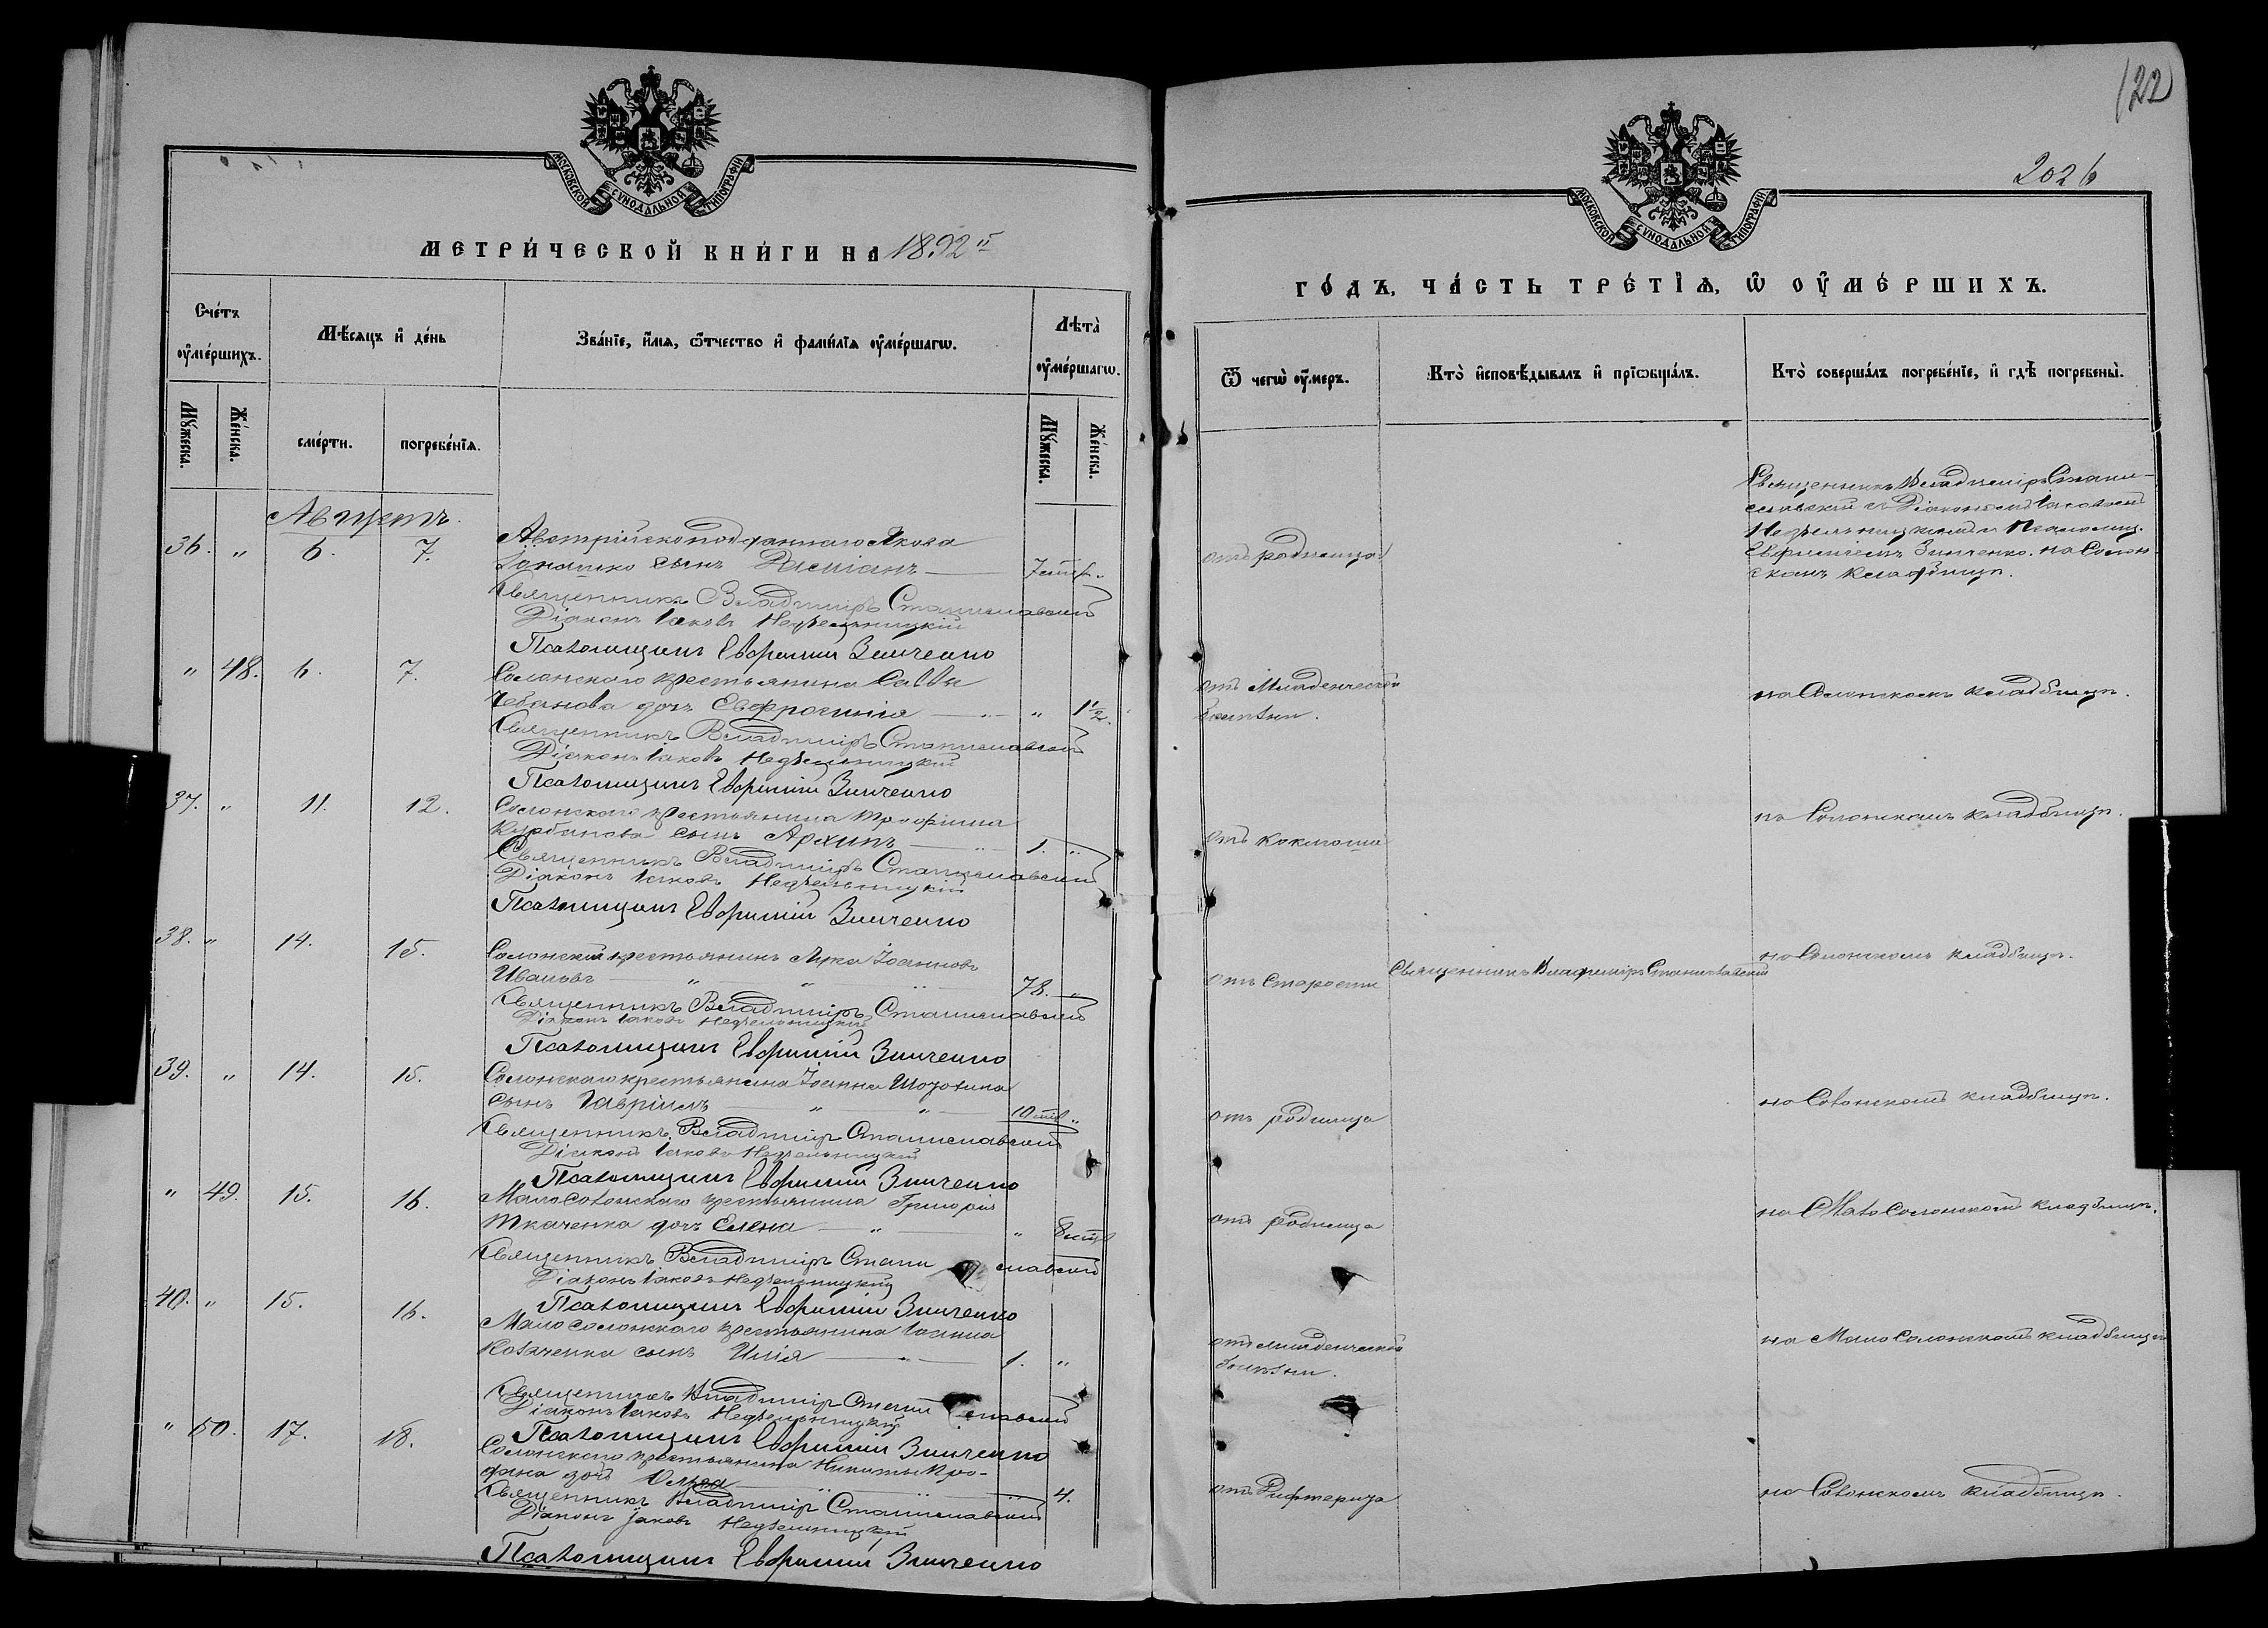 МОСКОВСКОЙ СѴНОДАЛЬНОЙ ТИПОГРАФІИ
МЕТРИ́ЧЕСКОЙ КНИ́ГИ НА 1892й
Сче́тъ оу҆ме́ршихъ.
Мѣ́сяцъ и҆ де́нь
Зва́нїе, и҆́мя, ѻ҆́тчество и҆ фами́лїя оу҆ме́ршагѡ.
Лѣта̀ оу҆ме́ршагѡ.
Мꙋ́жеска.
Же́нска.
сме́рти.
погребе́нїя.
Мꙋ́жеска.
Же́нска.
Августъ.
36. " 6. 7. Австрійскоподданнаго Якова
сынъ Даміанъ — 7 "
Священникъ Владиміръ Станиславскій
Діаконъ Іаковъ Недзельницкій
Псаломщикъ Евфимій Зинченко
" 48. 6. 7. Солонскаго крестьянина Саввы
Чебанова дочь Евфросинія — " 1½.
Священникъ Владиміръ Станиславскій
Діаконъ Іаковъ Недзельницкій
Псаломщикъ Евфимій Зинченко
37. " 11. 12. Солонскаго крестьянина Трофима
Курбанова сынъ Архипъ — 1. "
Священникъ Владиміръ Станиславскій
Діаконъ Іаковъ Недзельницкій
Псаломщикъ Евфимій Зинченко
38. " 14. 15. Солонскій крестьянинъ Лука Іоанновъ
Ивановъ " " " 78. "
Священникъ Владиміръ Станиславскій
Діаконъ Іаковъ Недзельницкій
Псаломщикъ Евфимій Зинченко
39. " 14. 15. Солонскаго крестьянина Іоанна
сынъ Гавріилъ " " 10 "
Священникъ Владиміръ Станиславскій
Діаконъ Іаковъ Недзельницкій
Псаломщикъ Евфимій Зинченко
" 49. 15. 16. Малосолонскаго крестьянина Григорія
Ткаченка дочь Елена — " " 8
Священникъ Владиміръ Станиславскій
Діаконъ Іаковъ Недзельницкій
Псаломщикъ Евфимій Зинченко
40. " 15. 16. Малосолонскаго крестьянина Іоанна
Козаченка сынъ Илія — 1. "
Священникъ Владиміръ Станиславскій
Діаконъ Іаковъ Недзельницкій
Псаломщикъ Евфимій Зинченко
" 50. 17. 18. Солонскаго крестьянина Никиты
дочь — 4.
Священникъ Владиміръ Станиславскій
Діаконъ Іаковъ Недзельницкій
Псаломщикъ Евфимій Зинченко
122
202 б
МОСКОВСКОЙ СѴНОДАЛЬНОЙ ТИПОГРАФІИ
ГО́ДЪ, ЧА́СТЬ ТРЕ́ТЇѦ, Ѡ҆ ОУ҆МЕ́РШИХЪ.
Ѿ чегѡ̀ оу҆́меръ.
Кто̀ и҆сповѣ́дывалъ и҆ прїѡбща́лъ.
Кто̀ соверша́лъ погребе́нїе, и҆ гдѣ̀ погребены̀.
отъ родимца
Священникъ Владиміръ Стани-
славскій съ Діакономъ Іаковомъ
Недзельницкимъ и Псаломщ.
Евфиміемъ Зинченко. на Солон-
скомъ кладбищѣ.
отъ младенческой
болѣзни.
на Солонскомъ кладбищѣ.
отъ коклюша
на Солонскомъ кладбищѣ.
отъ старости
Священникъ Владиміръ Станиславскій
на Солонскомъ кладбищѣ.
отъ родимца
на Солонскомъ кладбищѣ.
отъ родимца
на Мало Солонскомъ кладбищѣ.
отъ младенческой
болѣзни.
на Мало Солонскомъ кладбищѣ
отъ Дифтерита
на Солонскомъ кладбищѣ.